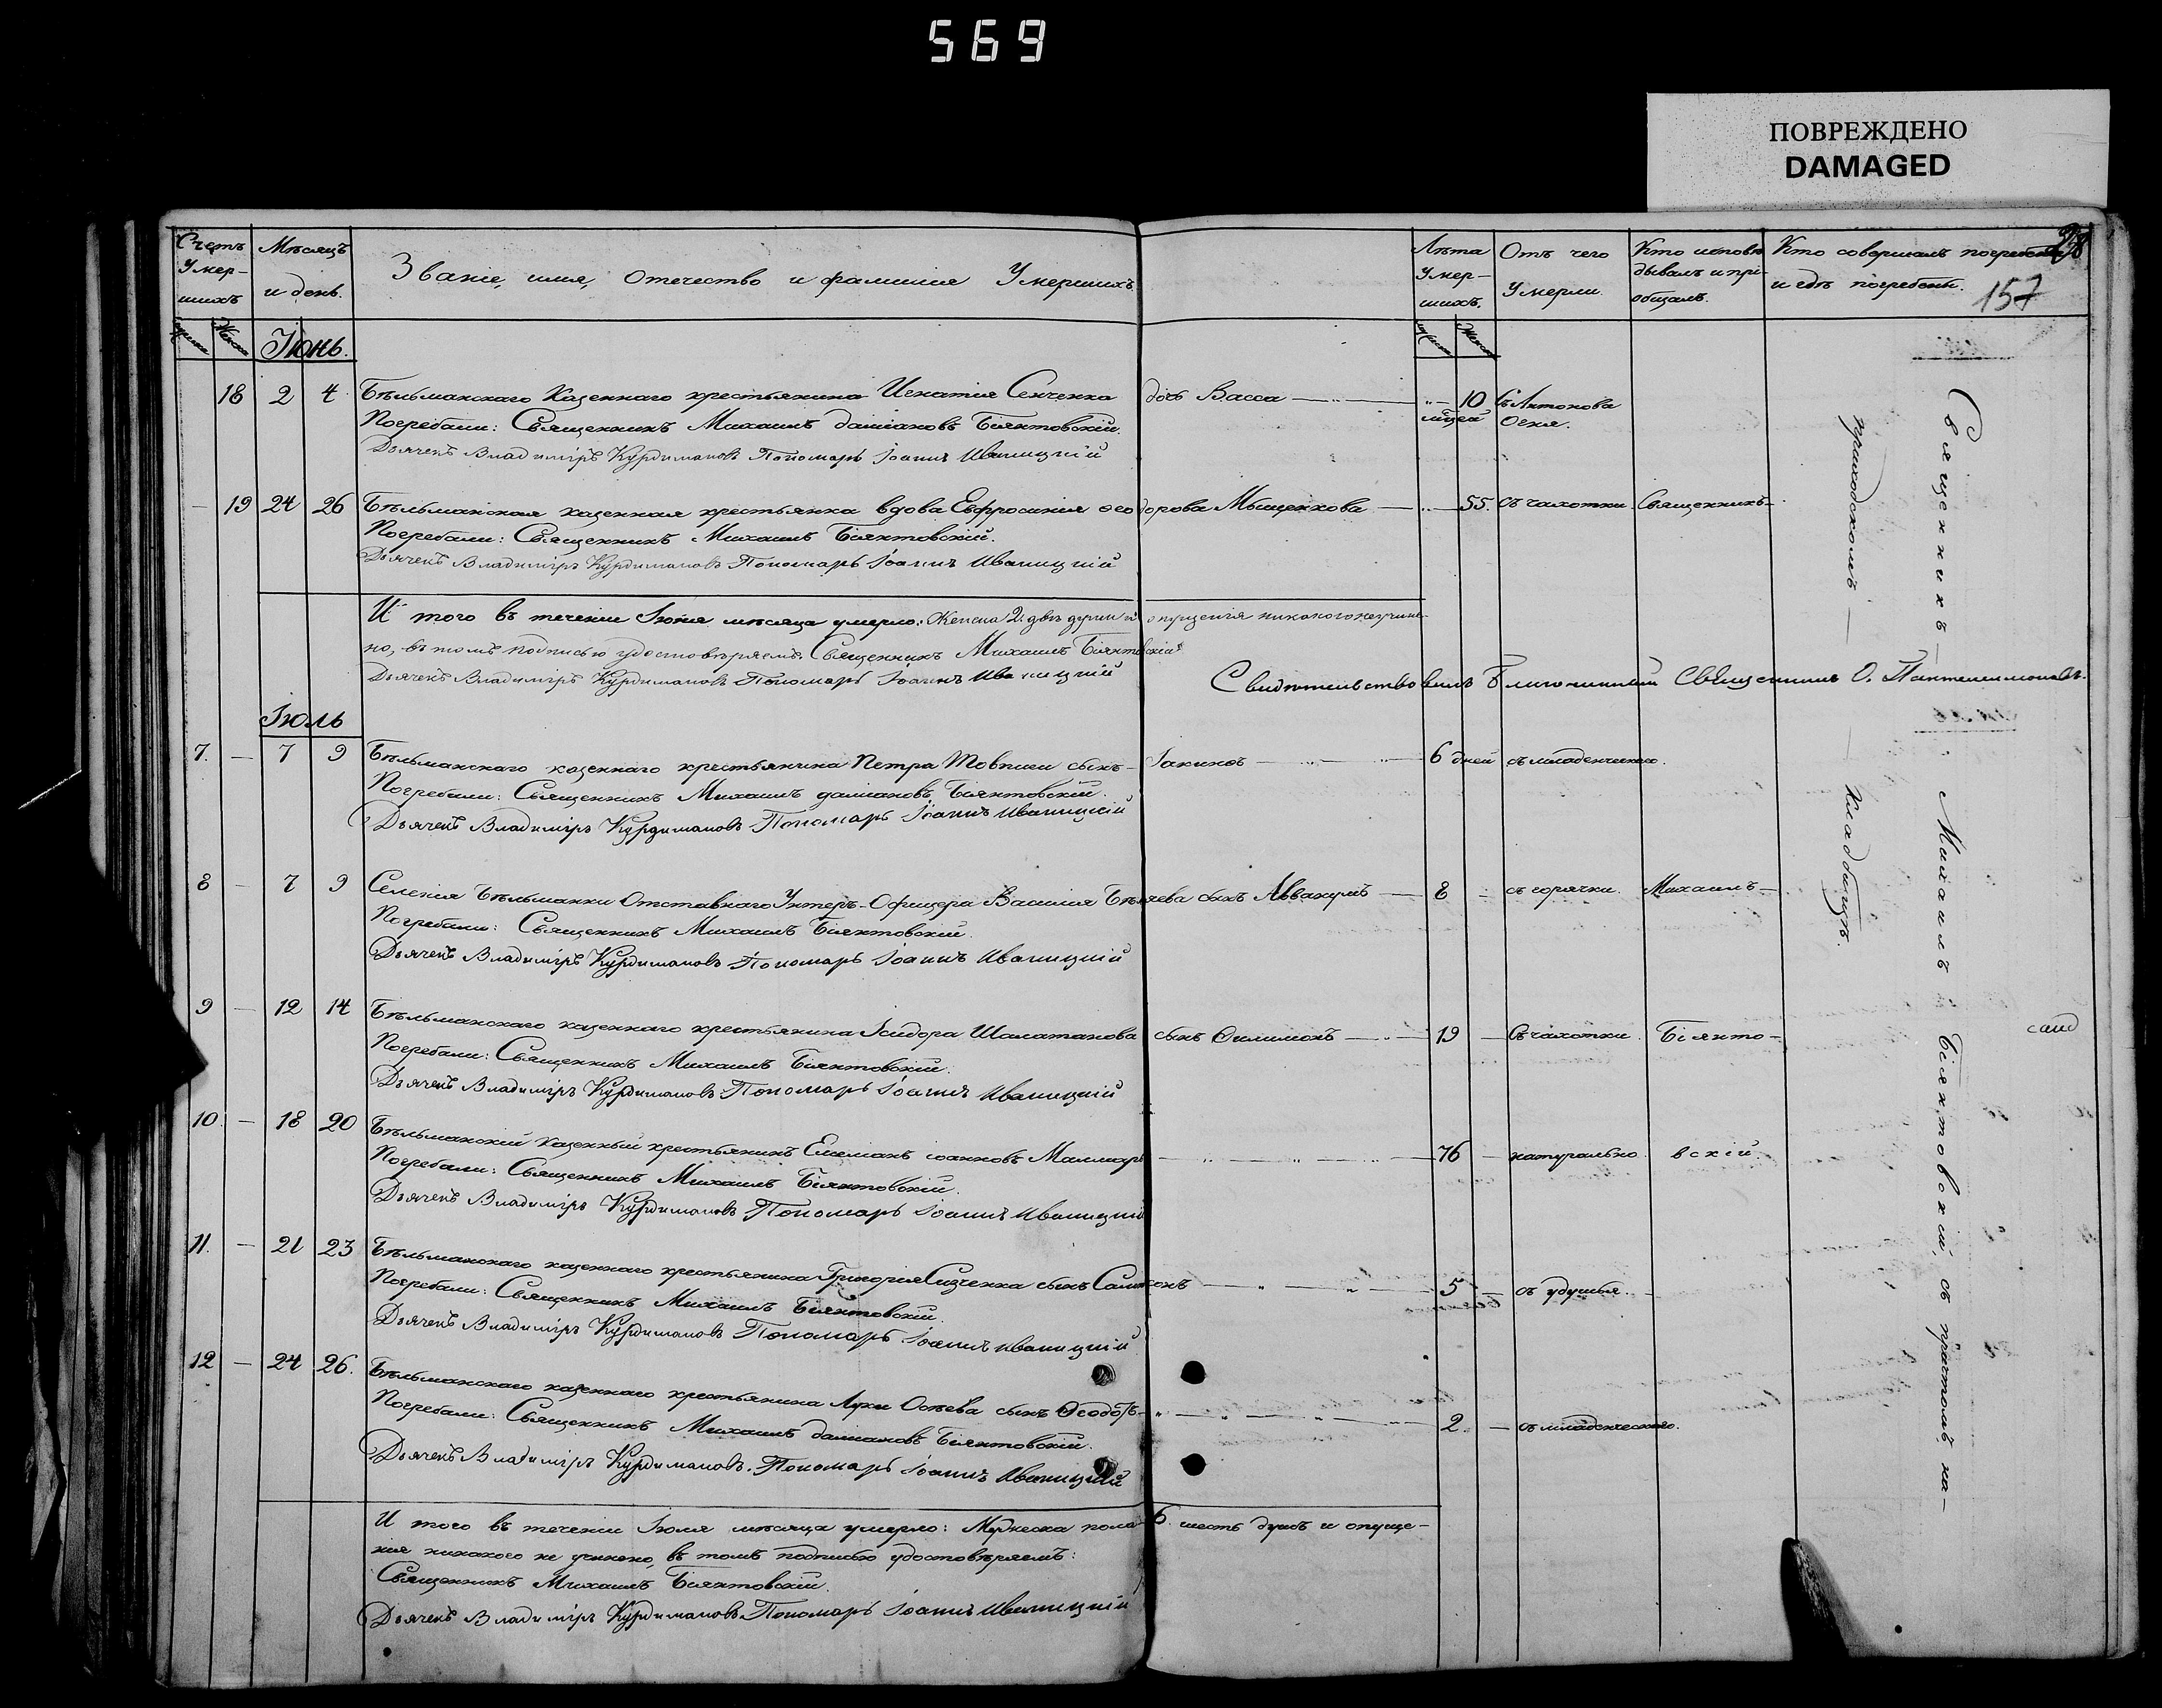 569
ПОВРЕЖДЕНО
DAMAGED
Счетъ Умер-шихъ
Мѣсяцъ и день.
Званіе, имя, отечество и фамилія Умершихъ
Лѣта Умер-шихъ.
Отъ чего Умерли.
Кто исповѣ-дывалъ и прі-общалъ.
Кто совершалъ погребеніе и гдѣ погребены.
157
Іюнь.
18 2 4 Бѣльманскаго Казеннаго крестьянина Игнатія Сенченка дочь Васса 10 Съ Антонова
Погребали: Священникъ Михаилъ даміановъ Біянтовскій. мѣсяцей Огня.
Дьячекъ Владиміръ Курдимановъ Пономарь Іоаннъ Иваницкій
19 24 26 Бѣльманская казенная крестьянка вдова Евфросинія Ѳеодорова Мыщенкова 55. съ чахотки Священникъ
Погребали: Священникъ Михаилъ Біянтовскій.
Дьячекъ Владиміръ Курдимановъ Пономарь Іоаннъ Иваницкій
И того въ теченіи Іюня мѣсяца умерло: Женска 2. двѣ души и опущенія никакого неучине-
но, въ томъ подписью удостовѣряемъ. Священникъ Михаилъ Біянтовскій
Дьячекъ Владиміръ Курдимановъ Пономарь Іоаннъ Иваницкій
Свидѣтельствовалъ Благочинный Священникъ О. Пантелеимоновъ.
Іюль
7. — 7 9 Бѣльманскаго казеннаго крестьянина Петра Товпиги сынъ Іакинѳъ 6 дней съ младенческаго.
Погребали: Священникъ Михаилъ даміановъ Біянтовскій.
Дьячекъ Владиміръ Курдимановъ Пономарь Іоаннъ Иваницкій
8 — 7 9 Селенія Бѣльманки Отставнаго Унтеръ-Офицера Василія Бѣляева сынъ Аввакумъ 8 съ горячки. Михаилъ
Погребали: Священникъ Михаилъ Біянтовскій.
Дьячекъ Владиміръ Курдимановъ Пономарь Іоаннъ Иваницкій
9 — 12 14 Бѣльманскаго казеннаго крестьянина Ісидора Шалатанова сынъ Филимонъ 19 — Съ чахотки Біянто-
Погребали: Священникъ Михаилъ Біянтовскій.
Дьячекъ Владиміръ Курдимановъ Пономарь Іоаннъ Иваницкій
10 — 18 20 Бѣльманскій Казенный крестьянинъ Емеліанъ іоанновъ 76 — натурально вскій.
Погребали: Священникъ Михаилъ Біянтовскій.
Дьячекъ Владиміръ Курдимановъ Пономарь Іоаннъ Иваницкій
11. — 21 23 Бѣльманскаго казеннаго крестьянина Григорія сынъ 5 — съ удушья.
Погребали: Священникъ Михаилъ Біянтовскій.
Дьячекъ Владиміръ Курдимановъ Пономарь Іоаннъ Иваницкій
12 — 24 26. Бѣльманскаго казеннаго крестьянина Луки сынъ Ѳеодоръ 2. — съ младенческаго.
Погребали: Священникъ Михаилъ даміановъ Біянтовскій.
Дьячекъ Владиміръ Курдимановъ. Пономарь Іоаннъ Иваницкій
И того въ теченіи Іюля мѣсяца умерло: Мужеска пола 6. шесть душъ и опуще-
нія никакого не учинено, въ томъ подписью удостовѣряемъ:
Священникъ Михаилъ Біянтовскій.
Дьячекъ Владиміръ Курдимановъ Пономарь Іоаннъ Иваницкій
Священникъ — Михаилъ Біянтовскій, съ причтомъ на-
приходскомъ — Кладбищѣ.